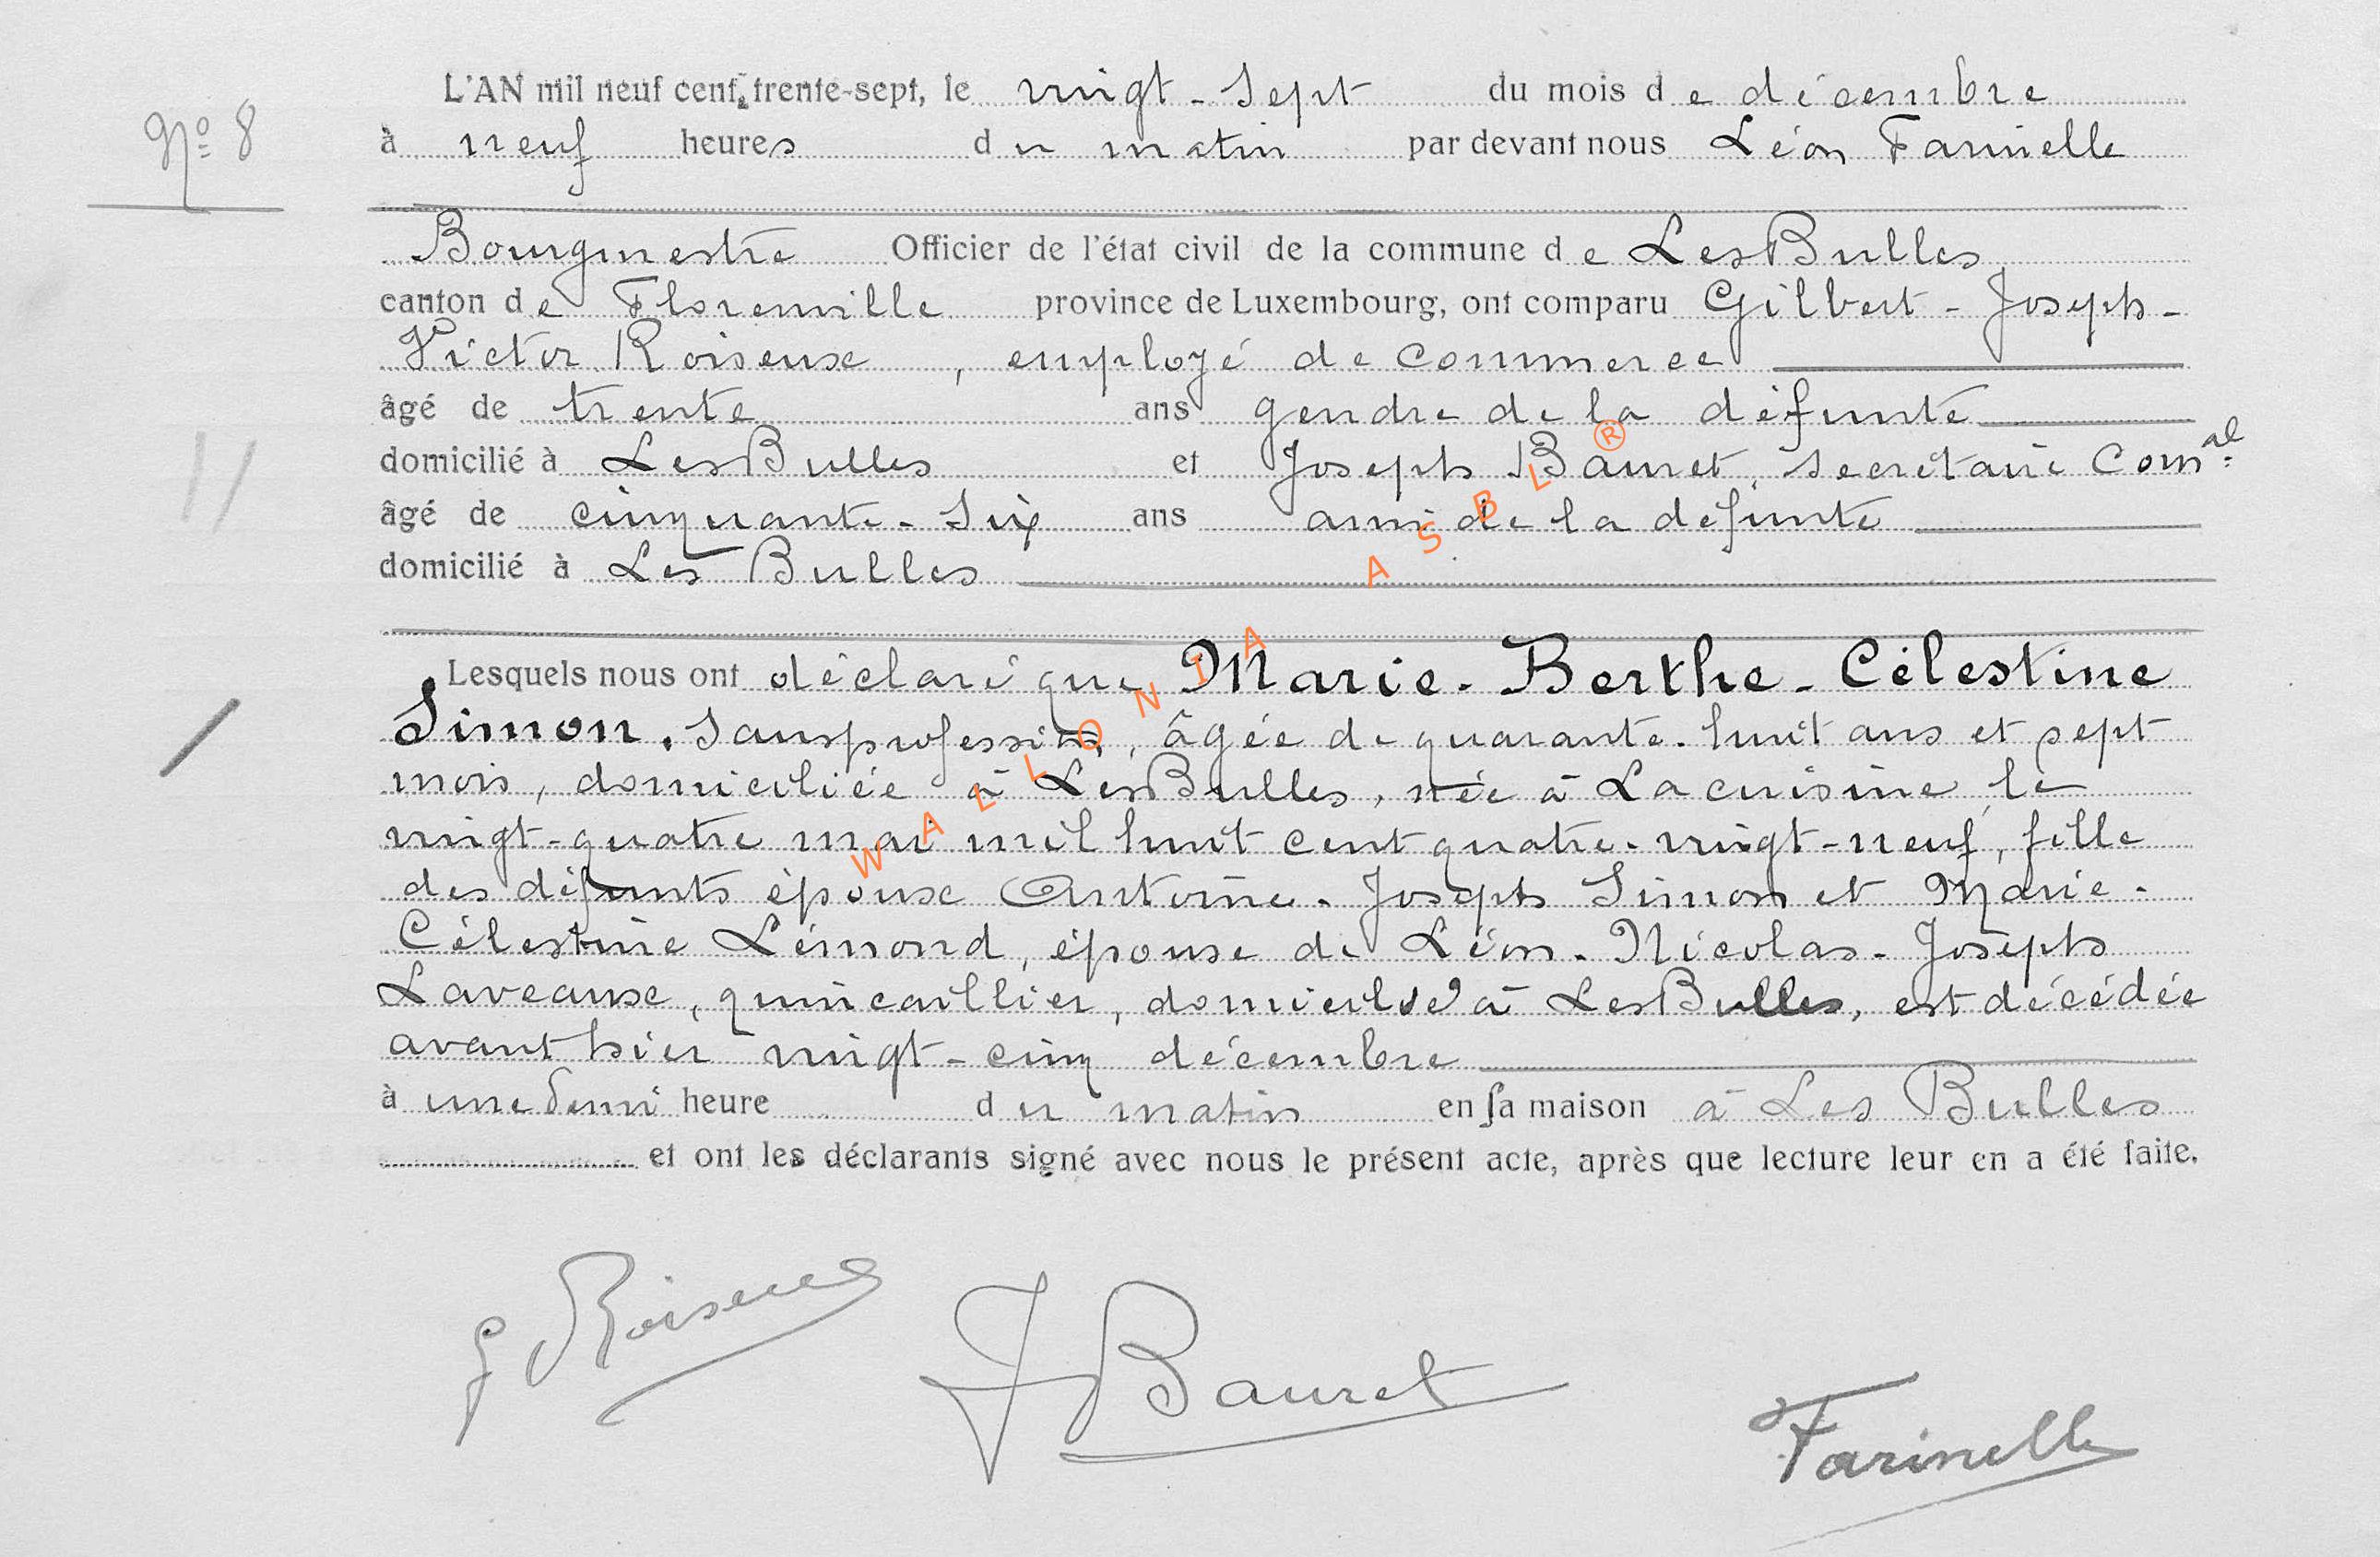 L'AN mil neuf cent trente-sept, le vingt-sept du mois de décembre
N° 8
à neuf heures du matin par devant nous Léon Farinelle
Bourgmestre Officier de l'état civil de la commune de LesBulles
canton de Florenville province de Luxembourg, ont comparu Gilbert-Joseph-
Victor Roiseux, employé de commerce
âgé de trente ans gendre de la défunte
domicilié à LesBulles et Joseph Bauret, secrétaire Com.al
âgé de cinquante-six ans ami de la défunte
domicilié à Les Bulles
Lesquels nous ont déclaré que Marie-Berthe-Célestine
Simon, sans profession, âgée de quarante-huit ans et sept
mois, domiciliée à LesBulles, née à Lacuisine le
vingt-quatre mai mil huit cent quatre-vingt-neuf, fille
des défunts époux Antoine-Joseph Simon et Marie-
Célestine Lémond, épouse de Léon-Nicolas-Joseph
Laveaux, quincaillier, domicilié à LesBulles, est décédée
avant hier vingt-cinq décembre
à une demi heure du matin en sa maison à Les Bulles
et ont les déclarants signé avec nous le présent acte, après que lecture leur en a été faite.
G Roiseux
J Bauret
Farinelle
WALLONIA ASBL ®